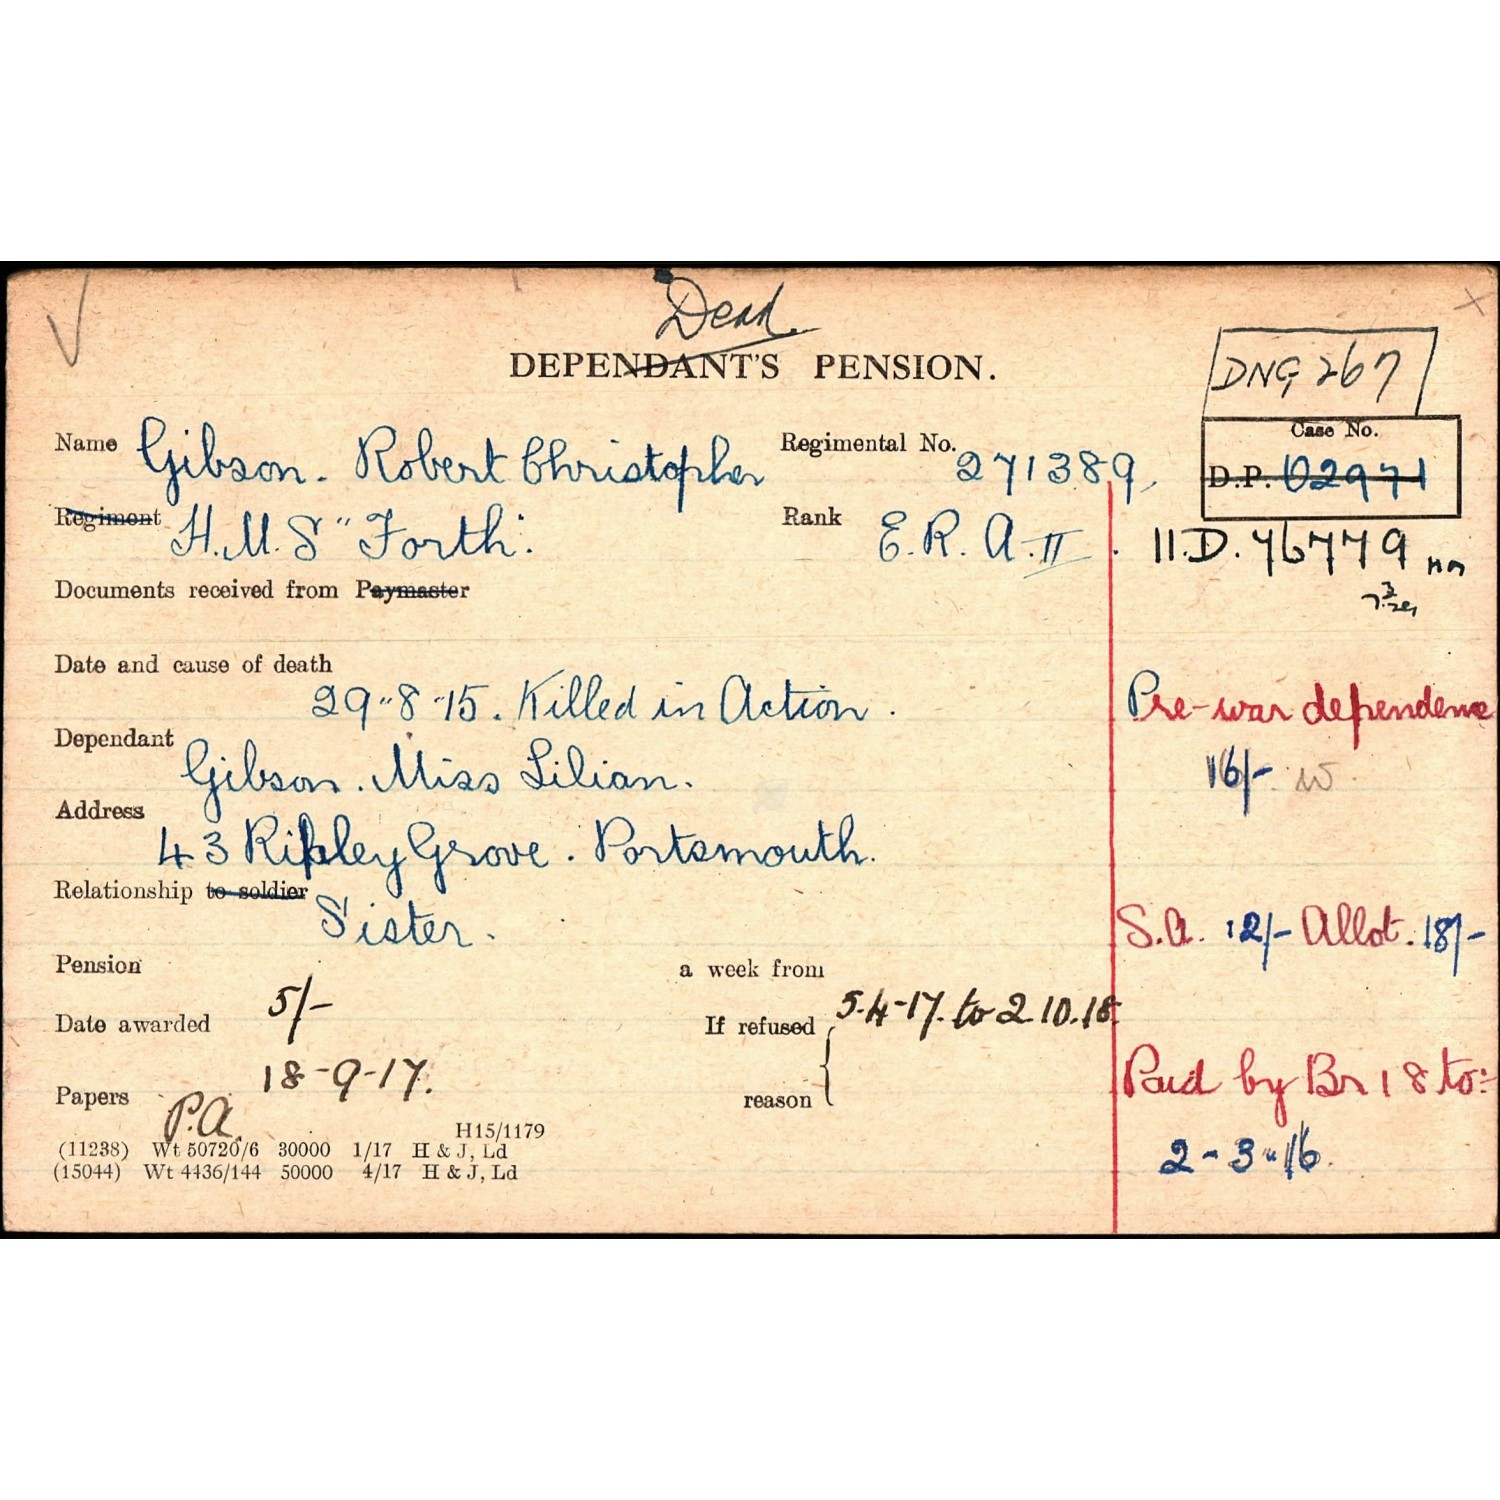 Dead.
DEPENDANT'S PENSION.
DNG 267
Case No.
D.P. 02971
Name Gibson. Robert Christopher Regimental No. 271389
Regiment H.M.S "Forth". Rank E.R.A. II. 11.D. 76779
Documents received from Paymaster
Date and cause of death
29-8-15. Killed in Action. Pre-war dependence
Dependant Gibson. Miss Lilian. 16/- w
Address
43 Ripley Grove. Portsmouth.
Relationship to soldier
Sister. S.A. 12/- Allot. 18/-
Pension 5/- a week from 5-4-17. to 2.10.18
Date awarded 18-9-17. If refused
reason
Paid by Br 18 to:-
2-3-16.
Papers P.A.
H15/1179
(11238) Wt 50720/6 30000 1/17 H & J, Ld
(15044) Wt 4436/144 50000 4/17 H & J, Ld